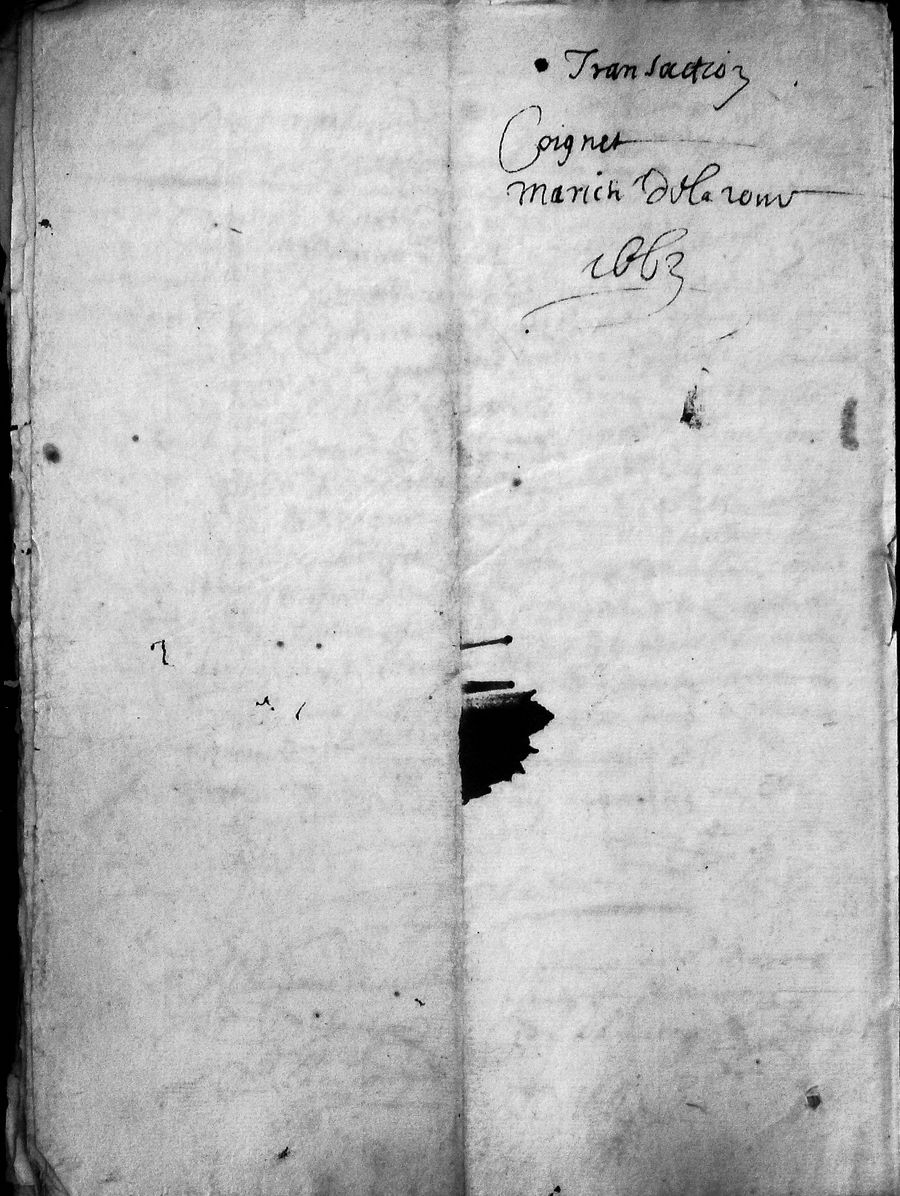 Transaction
Coignet
Marich Delaroue
1663